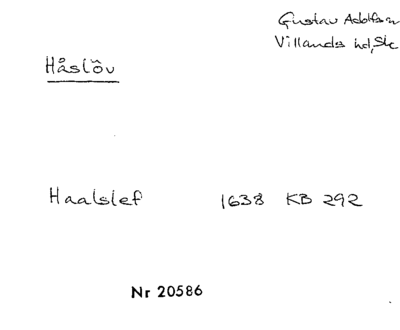 Gustav Adolfs sn
Villands hd, Sk
Håslöv
Haalslef 1638 KB 292
Nr 20586